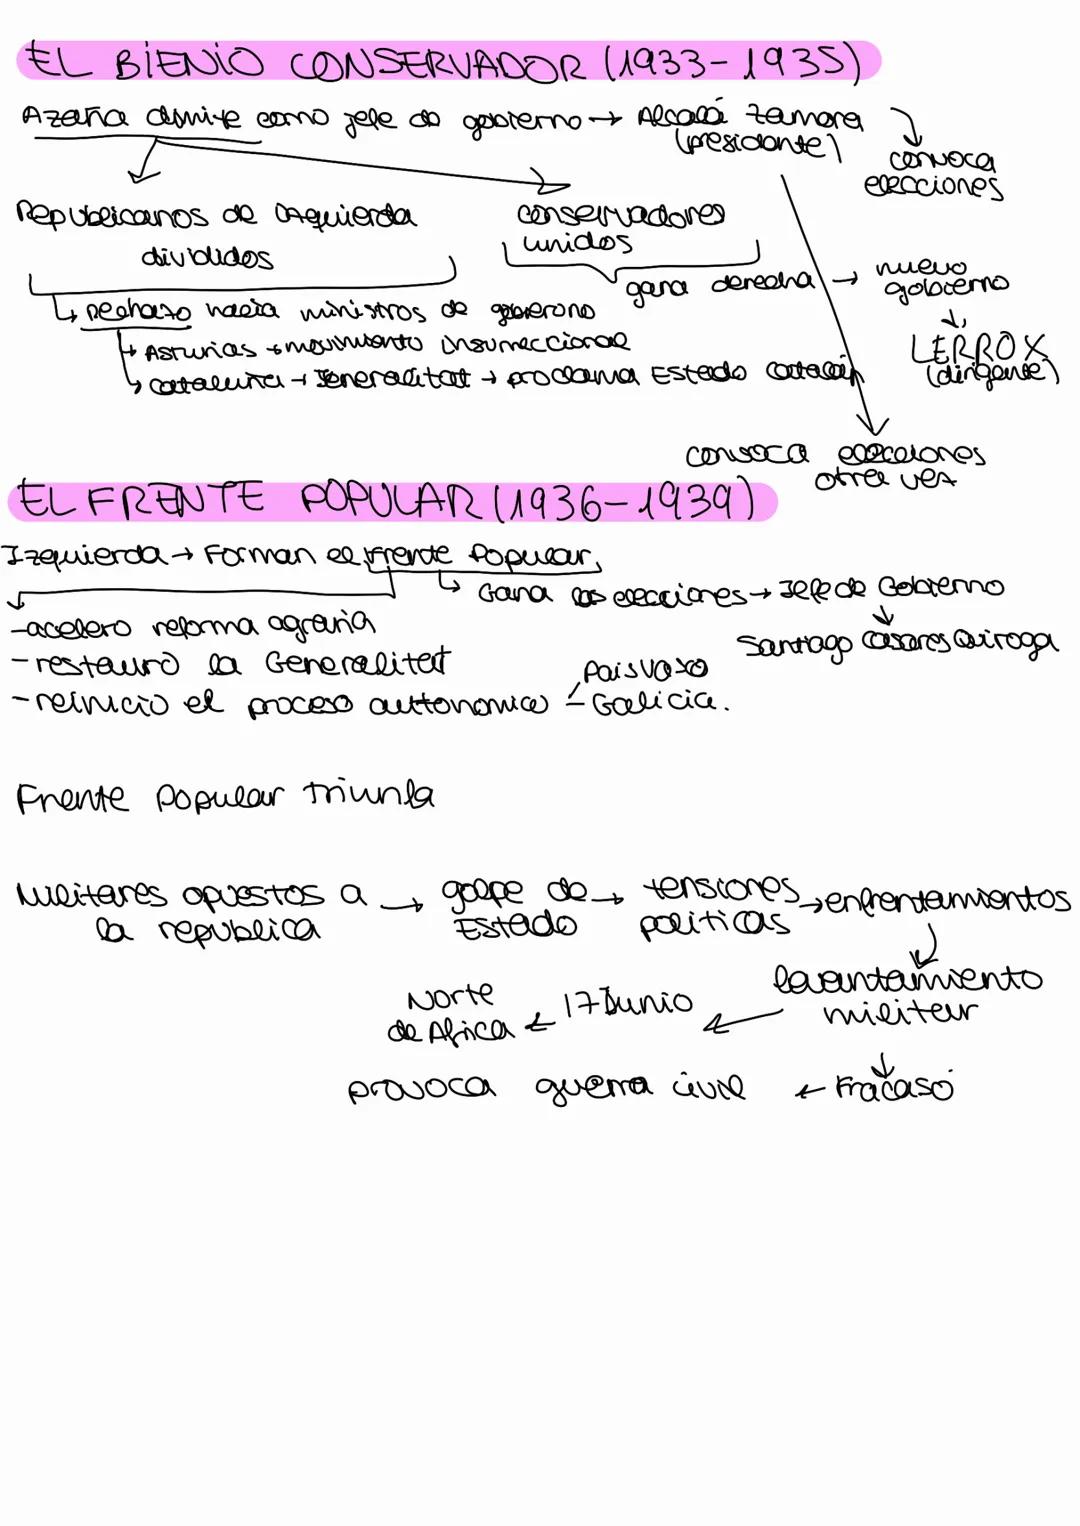 EL BIENIO CONSERVADOR (1933-1935)
Azaña dimite como jefe de gobierno → Alcalá Zamora
(presidente)
convoca
elecciones
Republicanos de izquierda
divididos
conservadores
unidos
gana derecha → nuevo
gobierno
LERROX
(dirigente)
rechazo hacia ministros de goberono
Asturias → movimiento insurreccional
Cataluña → Jeneralitat → proclama Estado catalán
convoca elecciones
otra vez
EL FRENTE POPULAR (1936-1939)
Izquierda → Forman el Frente Popular,
Gana las elecciones → Jefe de Gobierno
Santiago Casares Quiroga
-acelero reforma agraria
-restauró la Generalitat
-reinicio el proceso auttonomico - Galicia.
Pais Vasxo
Frente Popular triunfa
Militares opuestos a → golpe de → tensiones → enfrentamientos
la republica Estado politicas
levantamiento
militar
17 Junio
Norte
de Africa
provoca guerra civil ← Fracaso